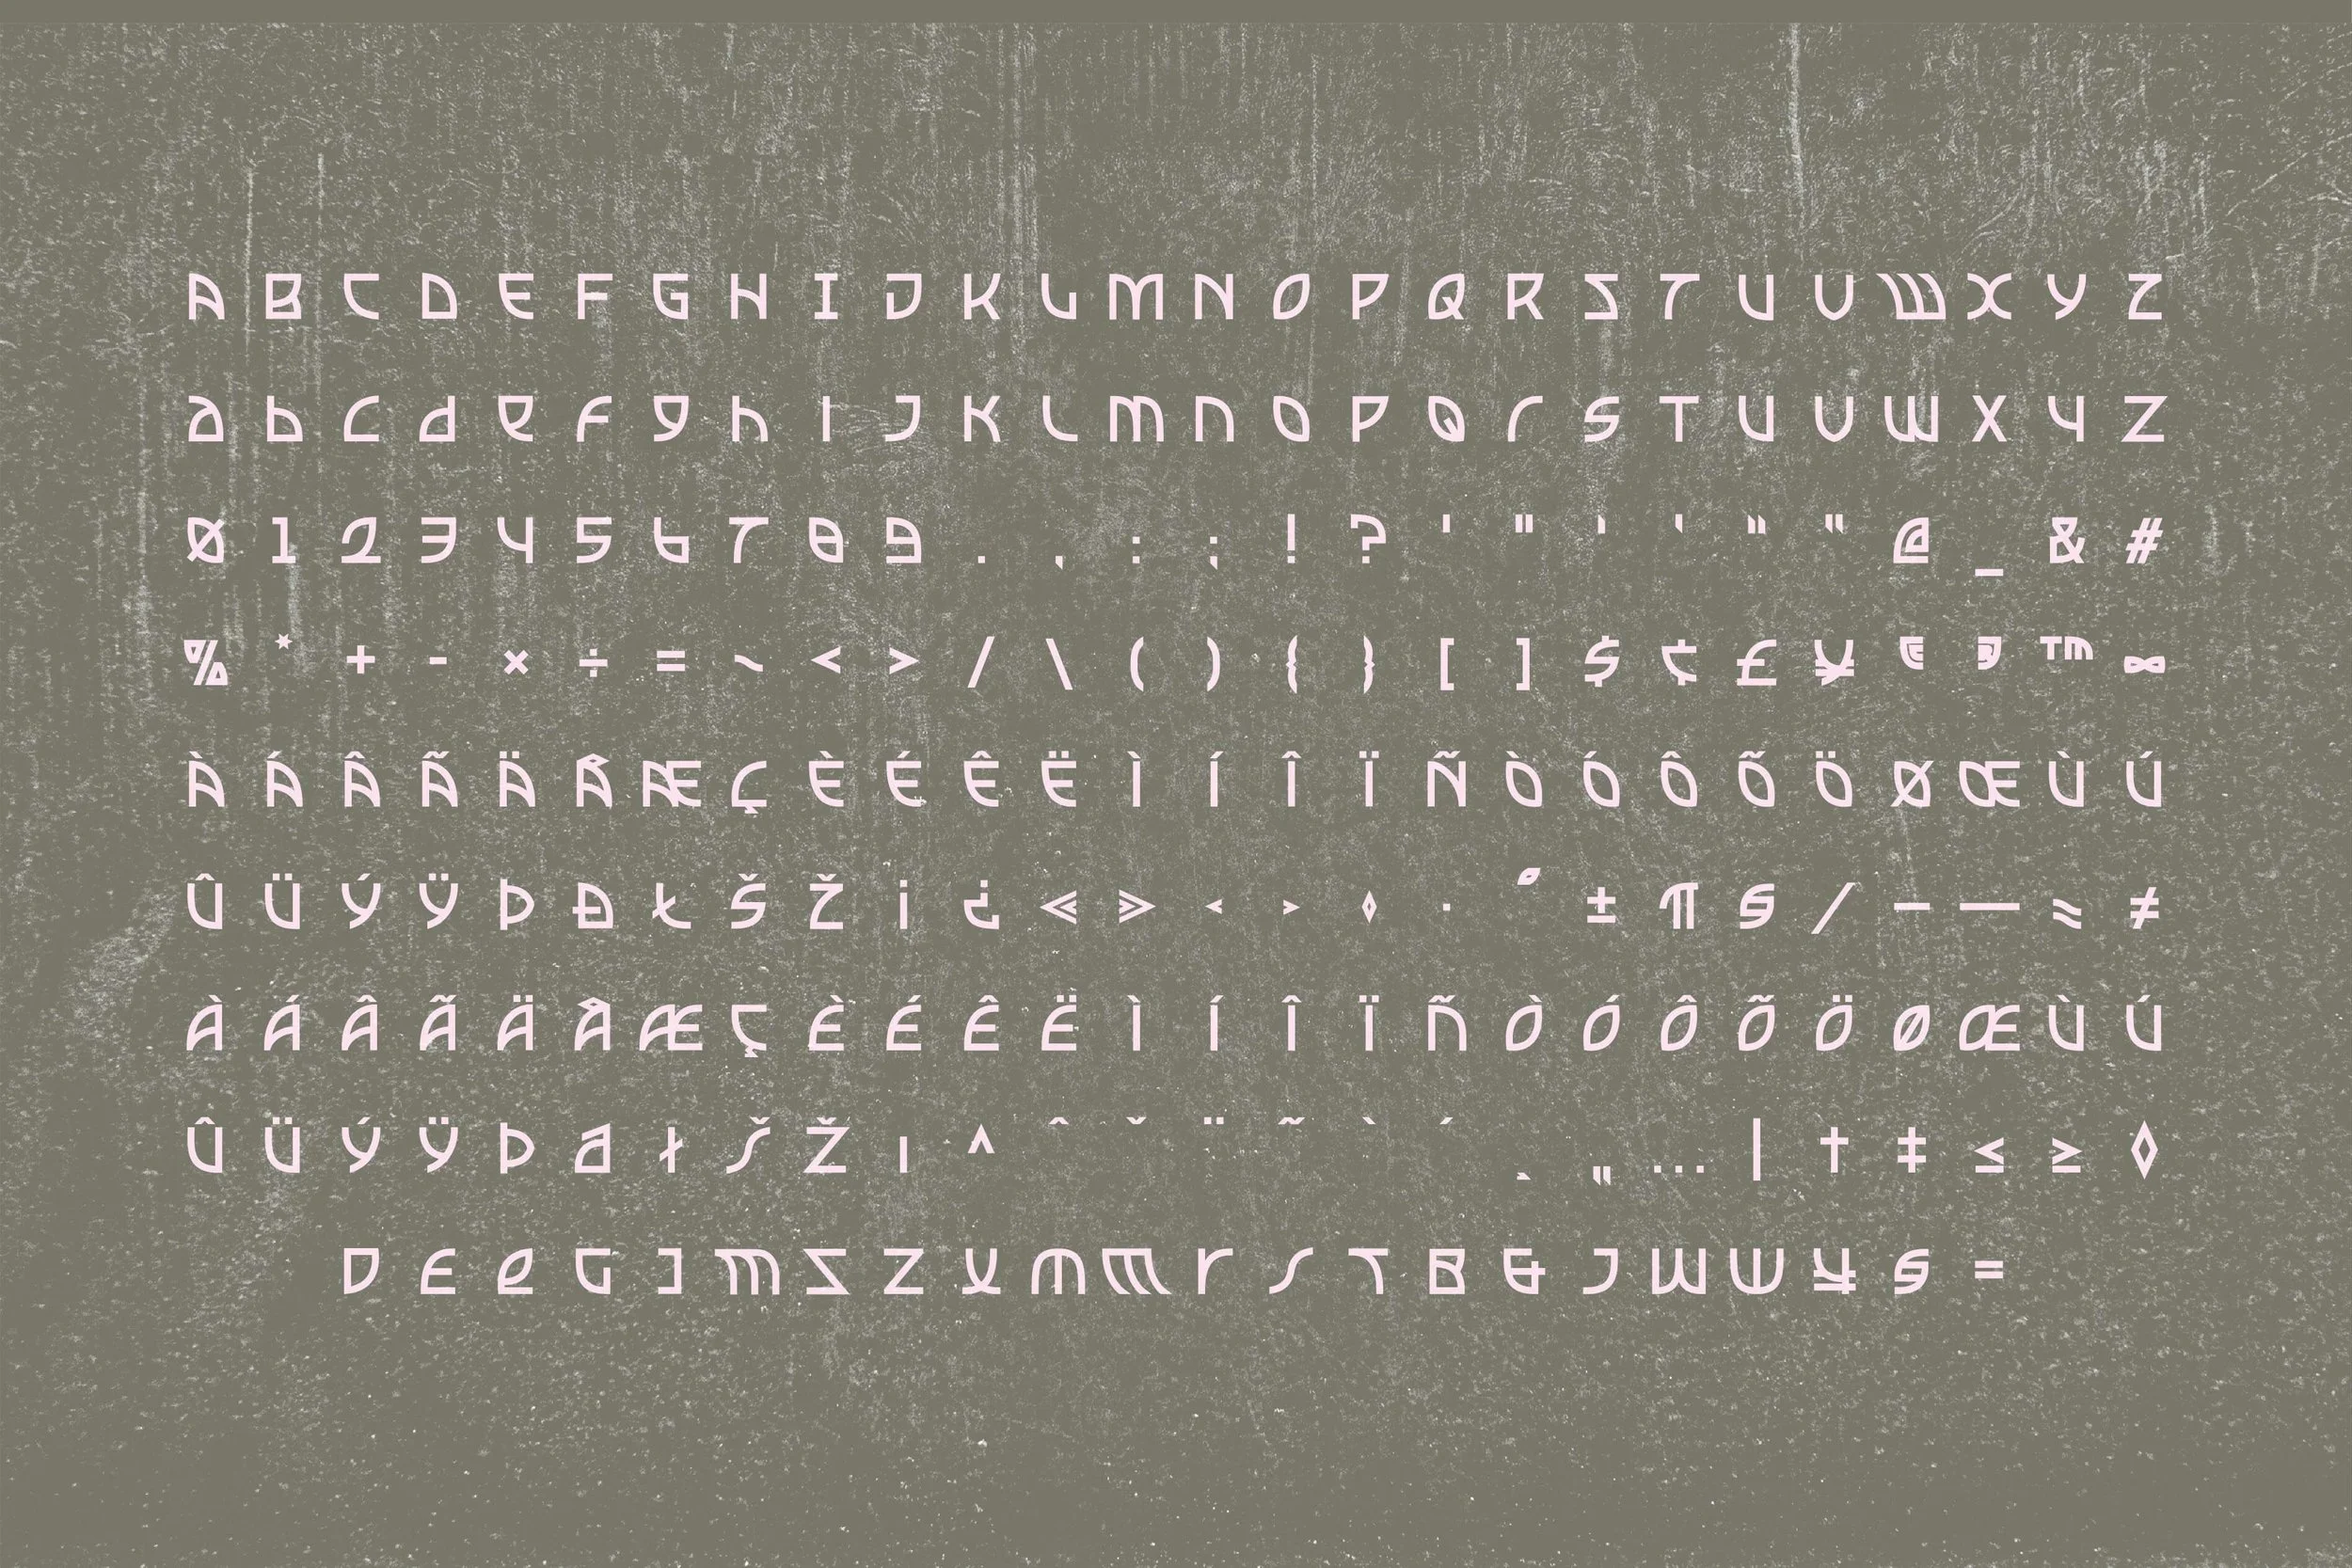 A B C D E F G H I J K L M N O P Q R S T U V W X Y Z
a b c d e f g h i j k l m n o p q r s t u v w x y z
0 1 2 3 4 5 6 7 8 9 . , : ; ! ? ' " ' ‘ " “ @ _ & #
% * + - × ÷ = ~ < > / \ ( ) { } [ ] $ ¢ £ ¥ © ® ™ ∞
À Á Â Ã Ä Å Æ Ç È É Ê Ë Ì Í Î Ï Ñ Ò Ó Ô Õ Ö Ø Œ Ù Ú
Û Ü Ý Ÿ Þ Ð Ł Š Ž ¡ ¿ « » ‹ › ◊ · ° ± ¶ § ⁄ – — ≈ ≠
à á â ã ä å æ ç è é ê ë ì í î ï ñ ò ó ô õ ö ø œ ù ú
û ü ý ÿ þ ð ł š ž ı ^ ˆ ˇ ¨ ˜ ` ´ ¸ „ … | † ‡ ≤ ≥ ◊
D E e G I m S Z y m w r s T B & J W W ¥ S =